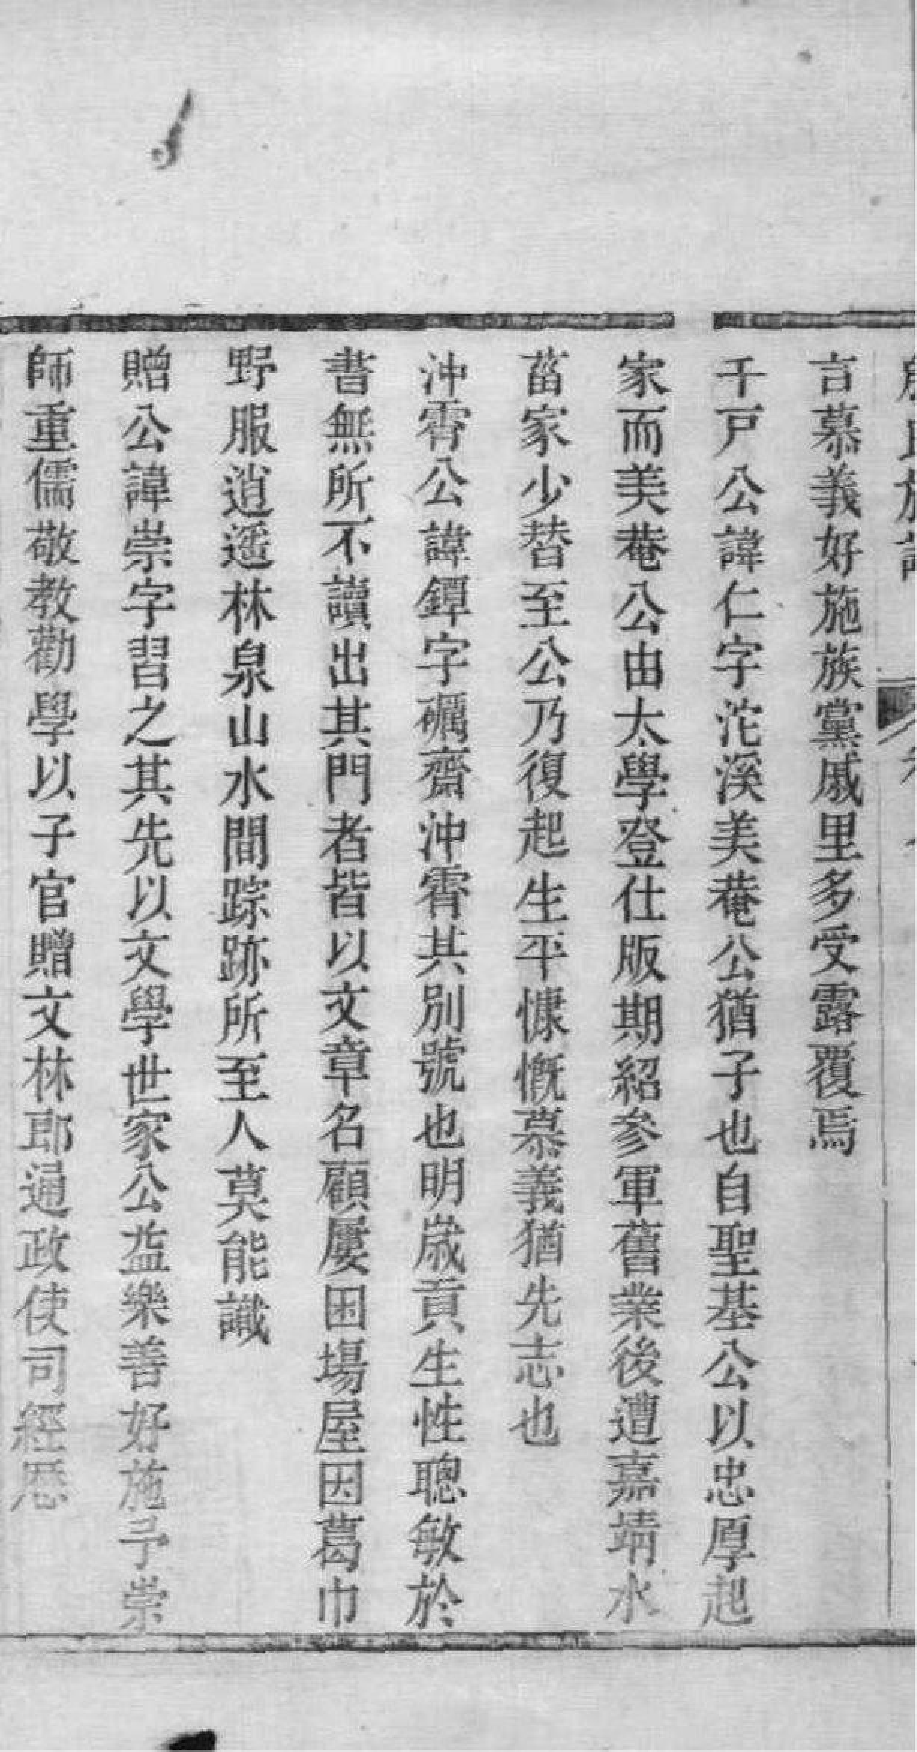 言慕義好施族黨戚里多受露覆焉
千戸公諱仁字沱溪美菴公猶子也自聖基公以忠厚起
家而美菴公由太學登仕版期紹參軍舊業後遭嘉靖水
菑家少替至公乃復起生平慷慨慕義猶先志也
沖霄公諱鐔字礪齋沖霄其別號也明歲貢生性聰敏於
書無所不讀出其門者皆以文章名顧屢困塲屋因葛巾
野服逍遥林泉山水間踪跡所至人莫能識
贈公諱崇字習之其先以文學世家公益樂善好施予崇
師重儒敬教勸學以子官贈文林郎通政使司經歷